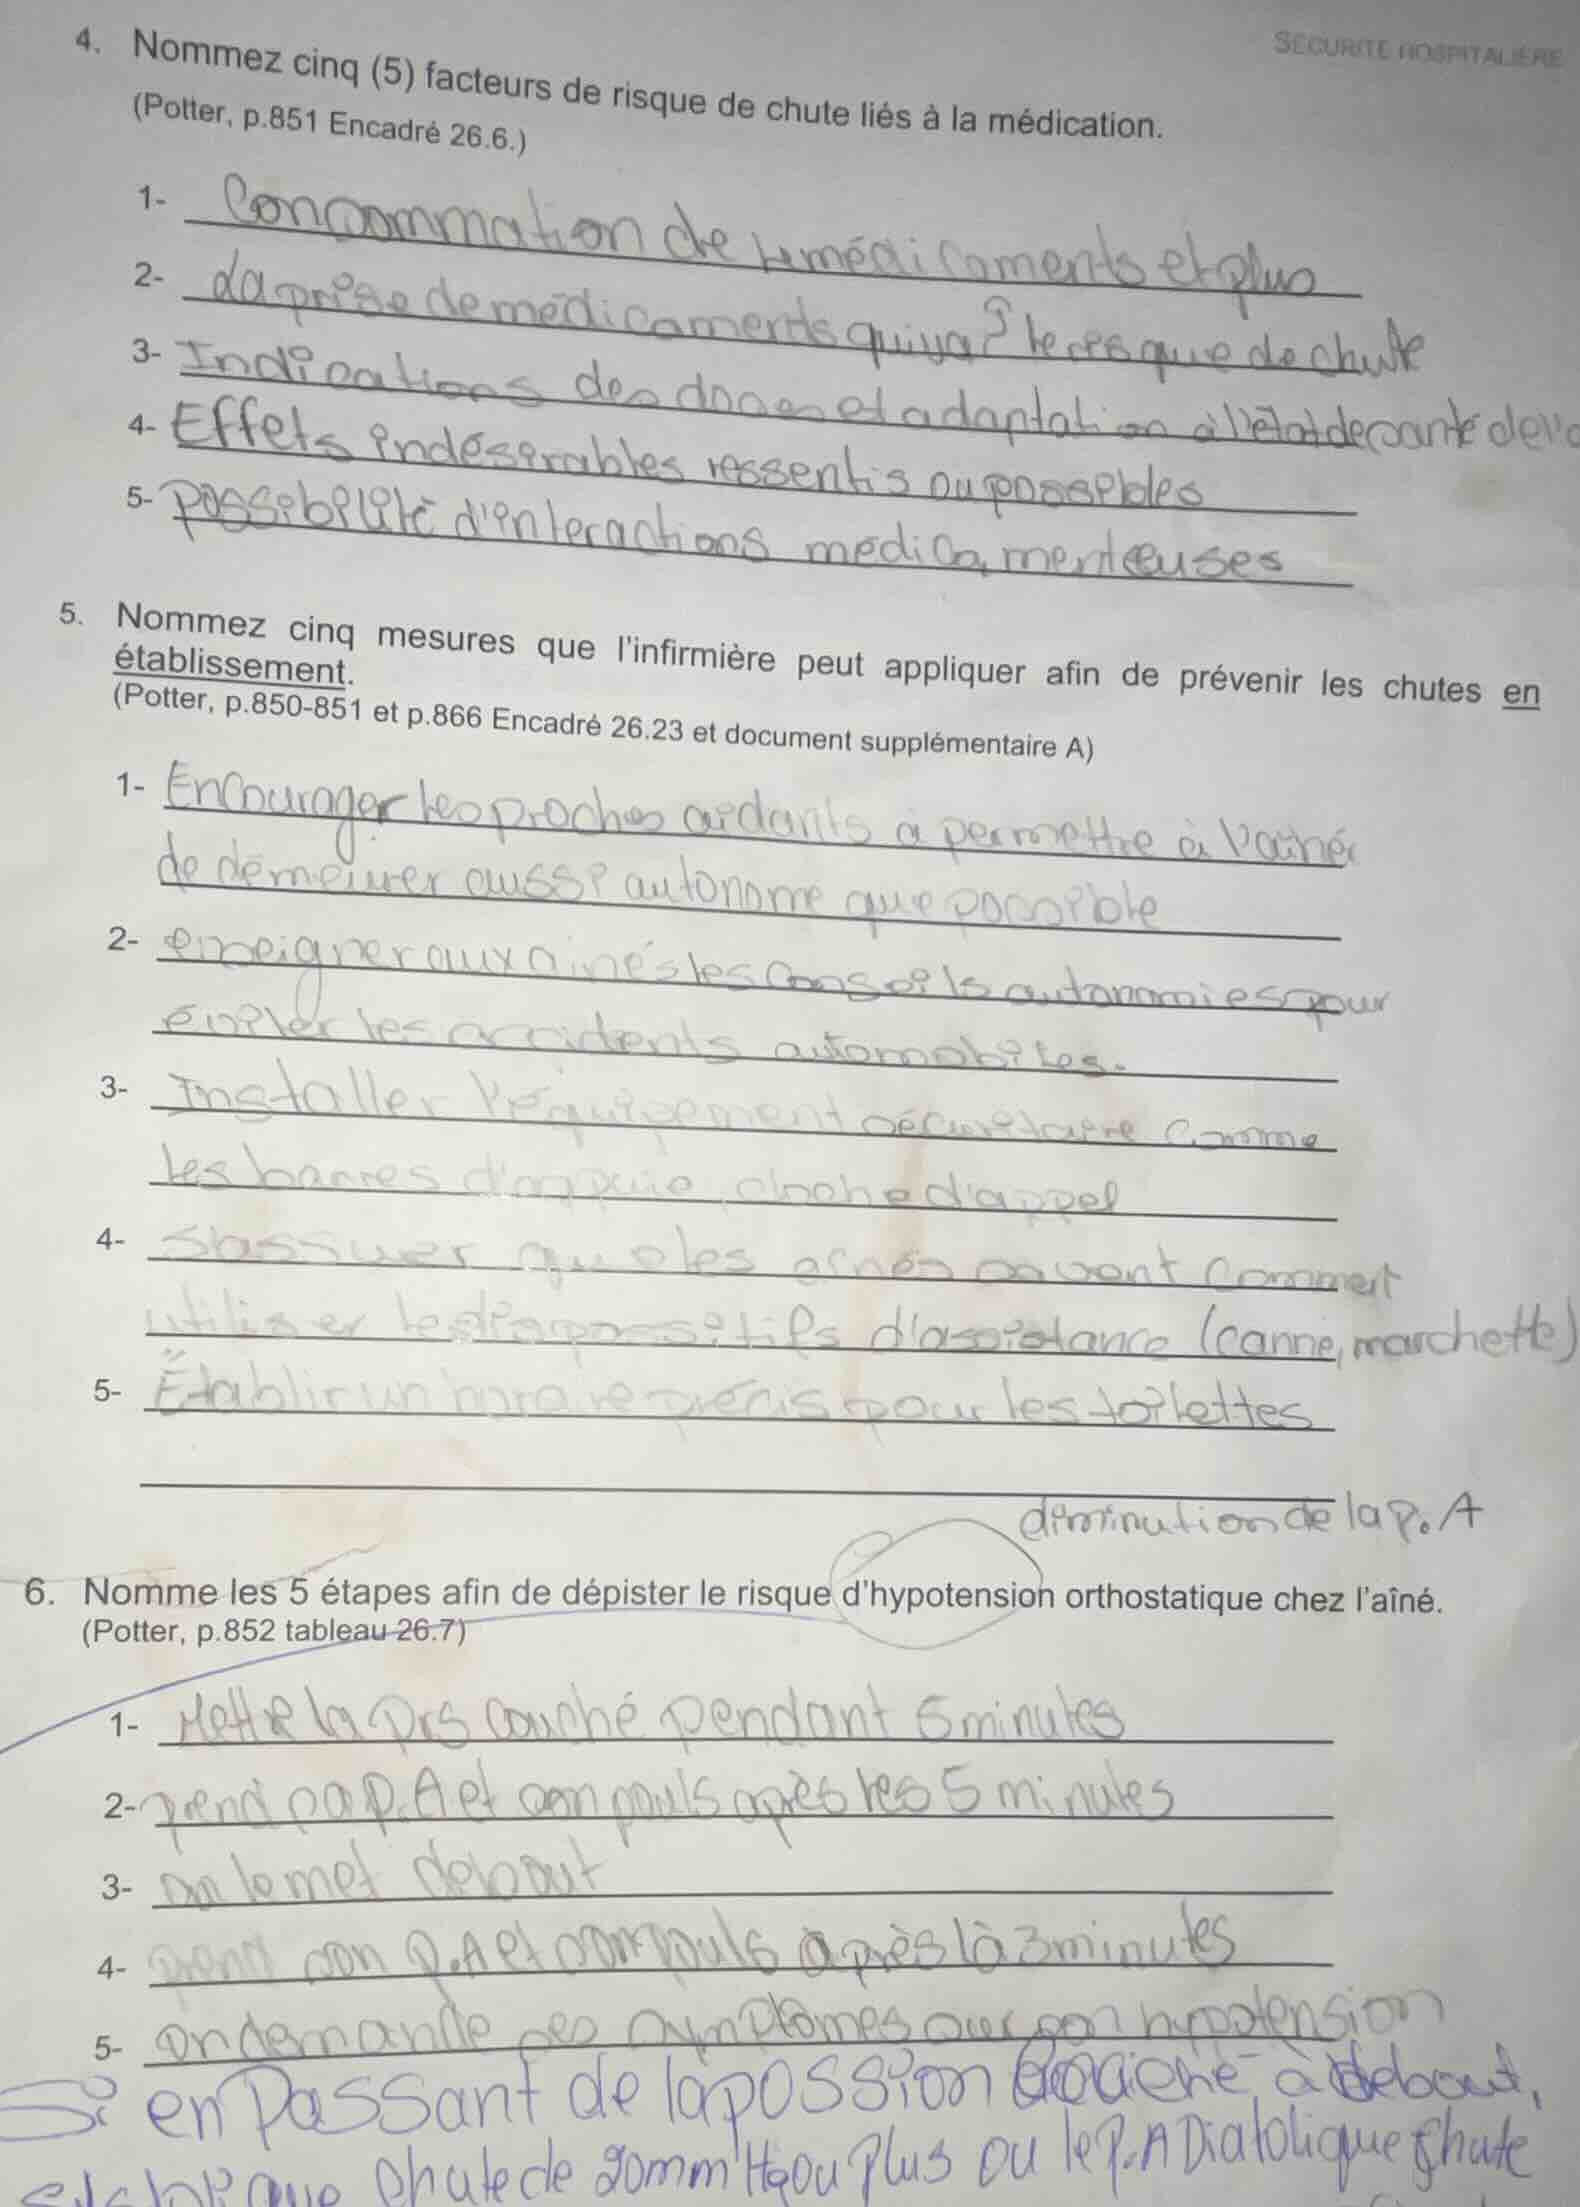 SÉCURITÉ HOSPITALIÈRE
4. Nommez cinq (5) facteurs de risque de chute liés à la médication.
(Potter, p.851 Encadré 26.6.)
1- Consommation de 4 médicaments et plus
2- La prise de médicaments qui va ↑ le risque de chute
3- Indications des doses et adaptation à l'état de santé de l'
4- Effets indésirables ressentis ou possibles
5- Possibilité d'interactions médicamenteuses
5. Nommez cinq mesures que l'infirmière peut appliquer afin de prévenir les chutes en
établissement.
(Potter, p.850-851 et p.866 Encadré 26.23 et document supplémentaire A)
1- Encourager les proches aidants à permettre à l'aîné
de demeurer aussi autonome que possible
2- enseigner aux ainés les conseils autonomies pour
éviter les accidents automobiles.
3- Installer l'équipement sécuritaire comme
les barres d'appuie, cloche d'appel
4- S'assurer que les aînés savent comment
utiliser les dispositifs d'assistance (canne, marchette)
5- Établir un horaire précis pour les toilettes
diminution de la P.A
6. Nomme les 5 étapes afin de dépister le risque d'hypotension orthostatique chez l'aîné.
(Potter, p.852 tableau 26.7)
1- Mettre la prs couché pendant 5 minutes
2- prend sa P.A et son pouls après les 5 minutes
3- on le met debout
4- prend son P.A et son pouls après là 3 minutes
5- on demande ses symptômes sur son hypotension
Si en passant de la possion couché à debout,
que chute de 20mmHg ou plus ou le P.A Diatolique chute